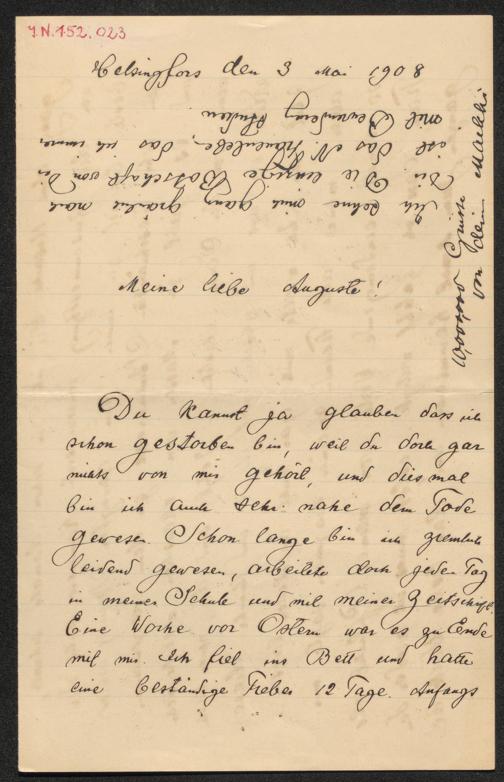 J.N. 152.023
Helsingfors den 3 Mai 1908
Meine liebe Auguste!
Du kannst ja glauben dass ich
schon gestorben bin, weil du doch gar
nichts von mir gehört, und diesmal
bin ich auch sehr nahe dem Tode
gewesen. Schon lange bin ich ziemlich
leidend gewesen, arbeitete doch jeden Tag
in meiner Schule und mit meiner Zeitschrift.
Eine Woche vor Ostern war es zu Ende
mit mir. Ich fiel ins Bett und hatte
eine beständige Fieber 12 Tage. Anfangs
Ich sehne mich ganz nach
Dir. Die einzige Botschaft von Dir
ist das N. Frauenleben, das ich immer
mit Bewunderung
Grüsse
von dein